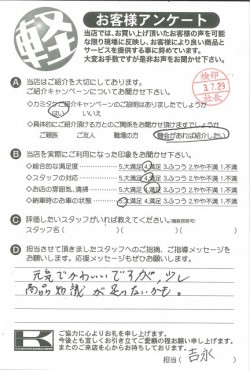 軽
お客様アンケート
当店では、お買い上げ頂いたお客様の声を可能
な限り現場に反映し、お客様により良い商品と
サービスを提供する事に努めています。
大変お手数ですが是非お声をお聞かせ下さい。
検印
3.7.29
社長
A 当店はご紹介を大切にしております。
ご紹介キャンペーンについてお聞かせ下さい
◇カミタケご紹介キャンペーンのご説明はありましたでしょうか
はい いいえ
◇具体的にご紹介頂ける方とのご関係をお聞かせ頂けますでしょうか
ご親戚 ご友人 職場の方 機会があれば紹介したい
B 当店を実際にご利用になった印象をお聞かせ下さい。
◇総合的な満足度 5.大満足 4.満足 3.ふつう 2.やや不満 1.不満
◇スタッフの対応 5.大満足 4.満足 3.ふつう 2.やや不満 1.不満
◇お店の雰囲気、清掃 5.大満足 4.満足 3.ふつう 2.やや不満 1.不満
◇納車時のお車の状態 5.大満足 4.満足 3.ふつう 2.やや不満 1.不満
C 評価したいスタッフがいれば教えてください。(複数回答可)
スタッフ名( )( )( )
D 担当させて頂きましたスタッフへのご指摘、ご指導メッセージを
お願いします。応援メッセージもぜひお願いします。
元気でかわいいですが、少し
商品知識が足りないかも。
K
ご協力に心よりお礼を申し上げます。
今後とも宜しくお引き立てご愛顧の程お願い申し上げます。
またのご来店を心からお待ちしております。
担当( 吉永 )